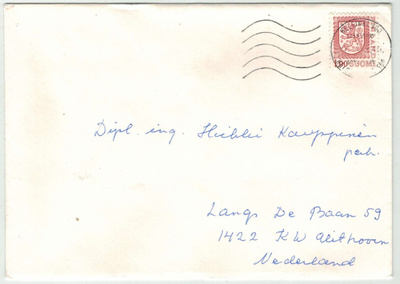 SUOMI
Dipl. ing. Heikki Kauppinen
Langs De Baan 59
1422 KW Uithoven
Nederland